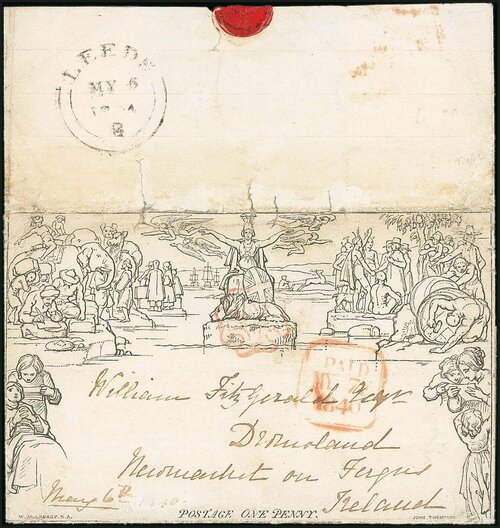 LEEDS
MY 6
PAID
MY 7
1840
William FitzGerald Esqr
Dromoland
Newmarket on Fergus
Ireland
May 6th
POSTAGE ONE PENNY.
W. MULREADY, R.A.
JOHN THOMPSON